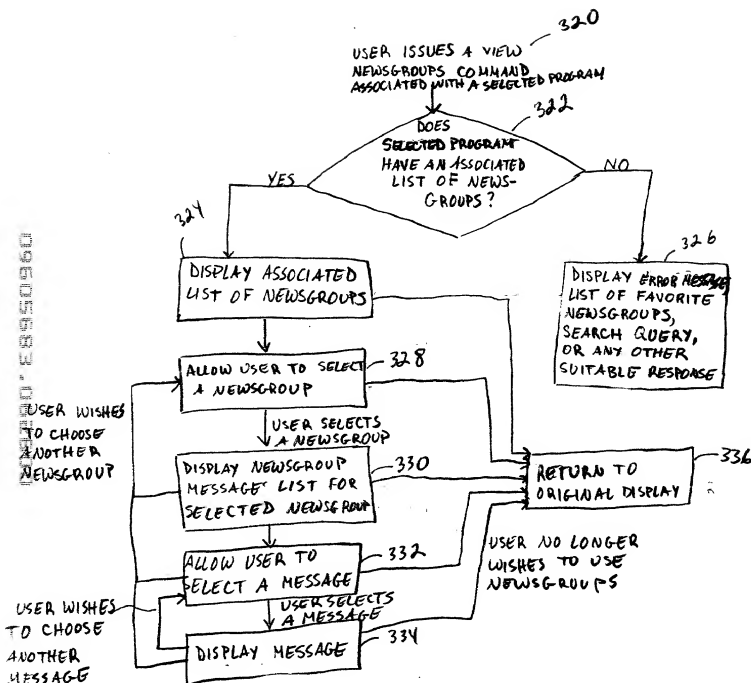 320
USER ISSUES A VIEW
NEWSGROUPS COMMAND
ASSOCIATED WITH A SELECTED PROGRAM
322
DOES
SELECTED PROGRAM
HAVE AN ASSOCIATED
LIST OF NEWS-
GROUPS?
YES
NO
324
DISPLAY ASSOCIATED
LIST OF NEWSGROUPS
326
DISPLAY ERROR MESSAGE,
LIST OF FAVORITE
NEWSGROUPS,
SEARCH QUERY,
OR ANY OTHER
SUITABLE RESPONSE
ALLOW USER TO SELECT
A NEWSGROUP
328
USER WISHES
TO CHOOSE
ANOTHER
NEWSGROUP
USER SELECTS
A NEWSGROUP
DISPLAY NEWSGROUP
MESSAGE LIST FOR
SELECTED NEWSGROUP
330
RETURN TO
ORIGINAL DISPLAY
336
ALLOW USER TO
SELECT A MESSAGE
332
USER NO LONGER
WISHES TO USE
NEWSGROUPS
USER WISHES
TO CHOOSE
ANOTHER
MESSAGE
USER SELECTS
A MESSAGE
DISPLAY MESSAGE
334